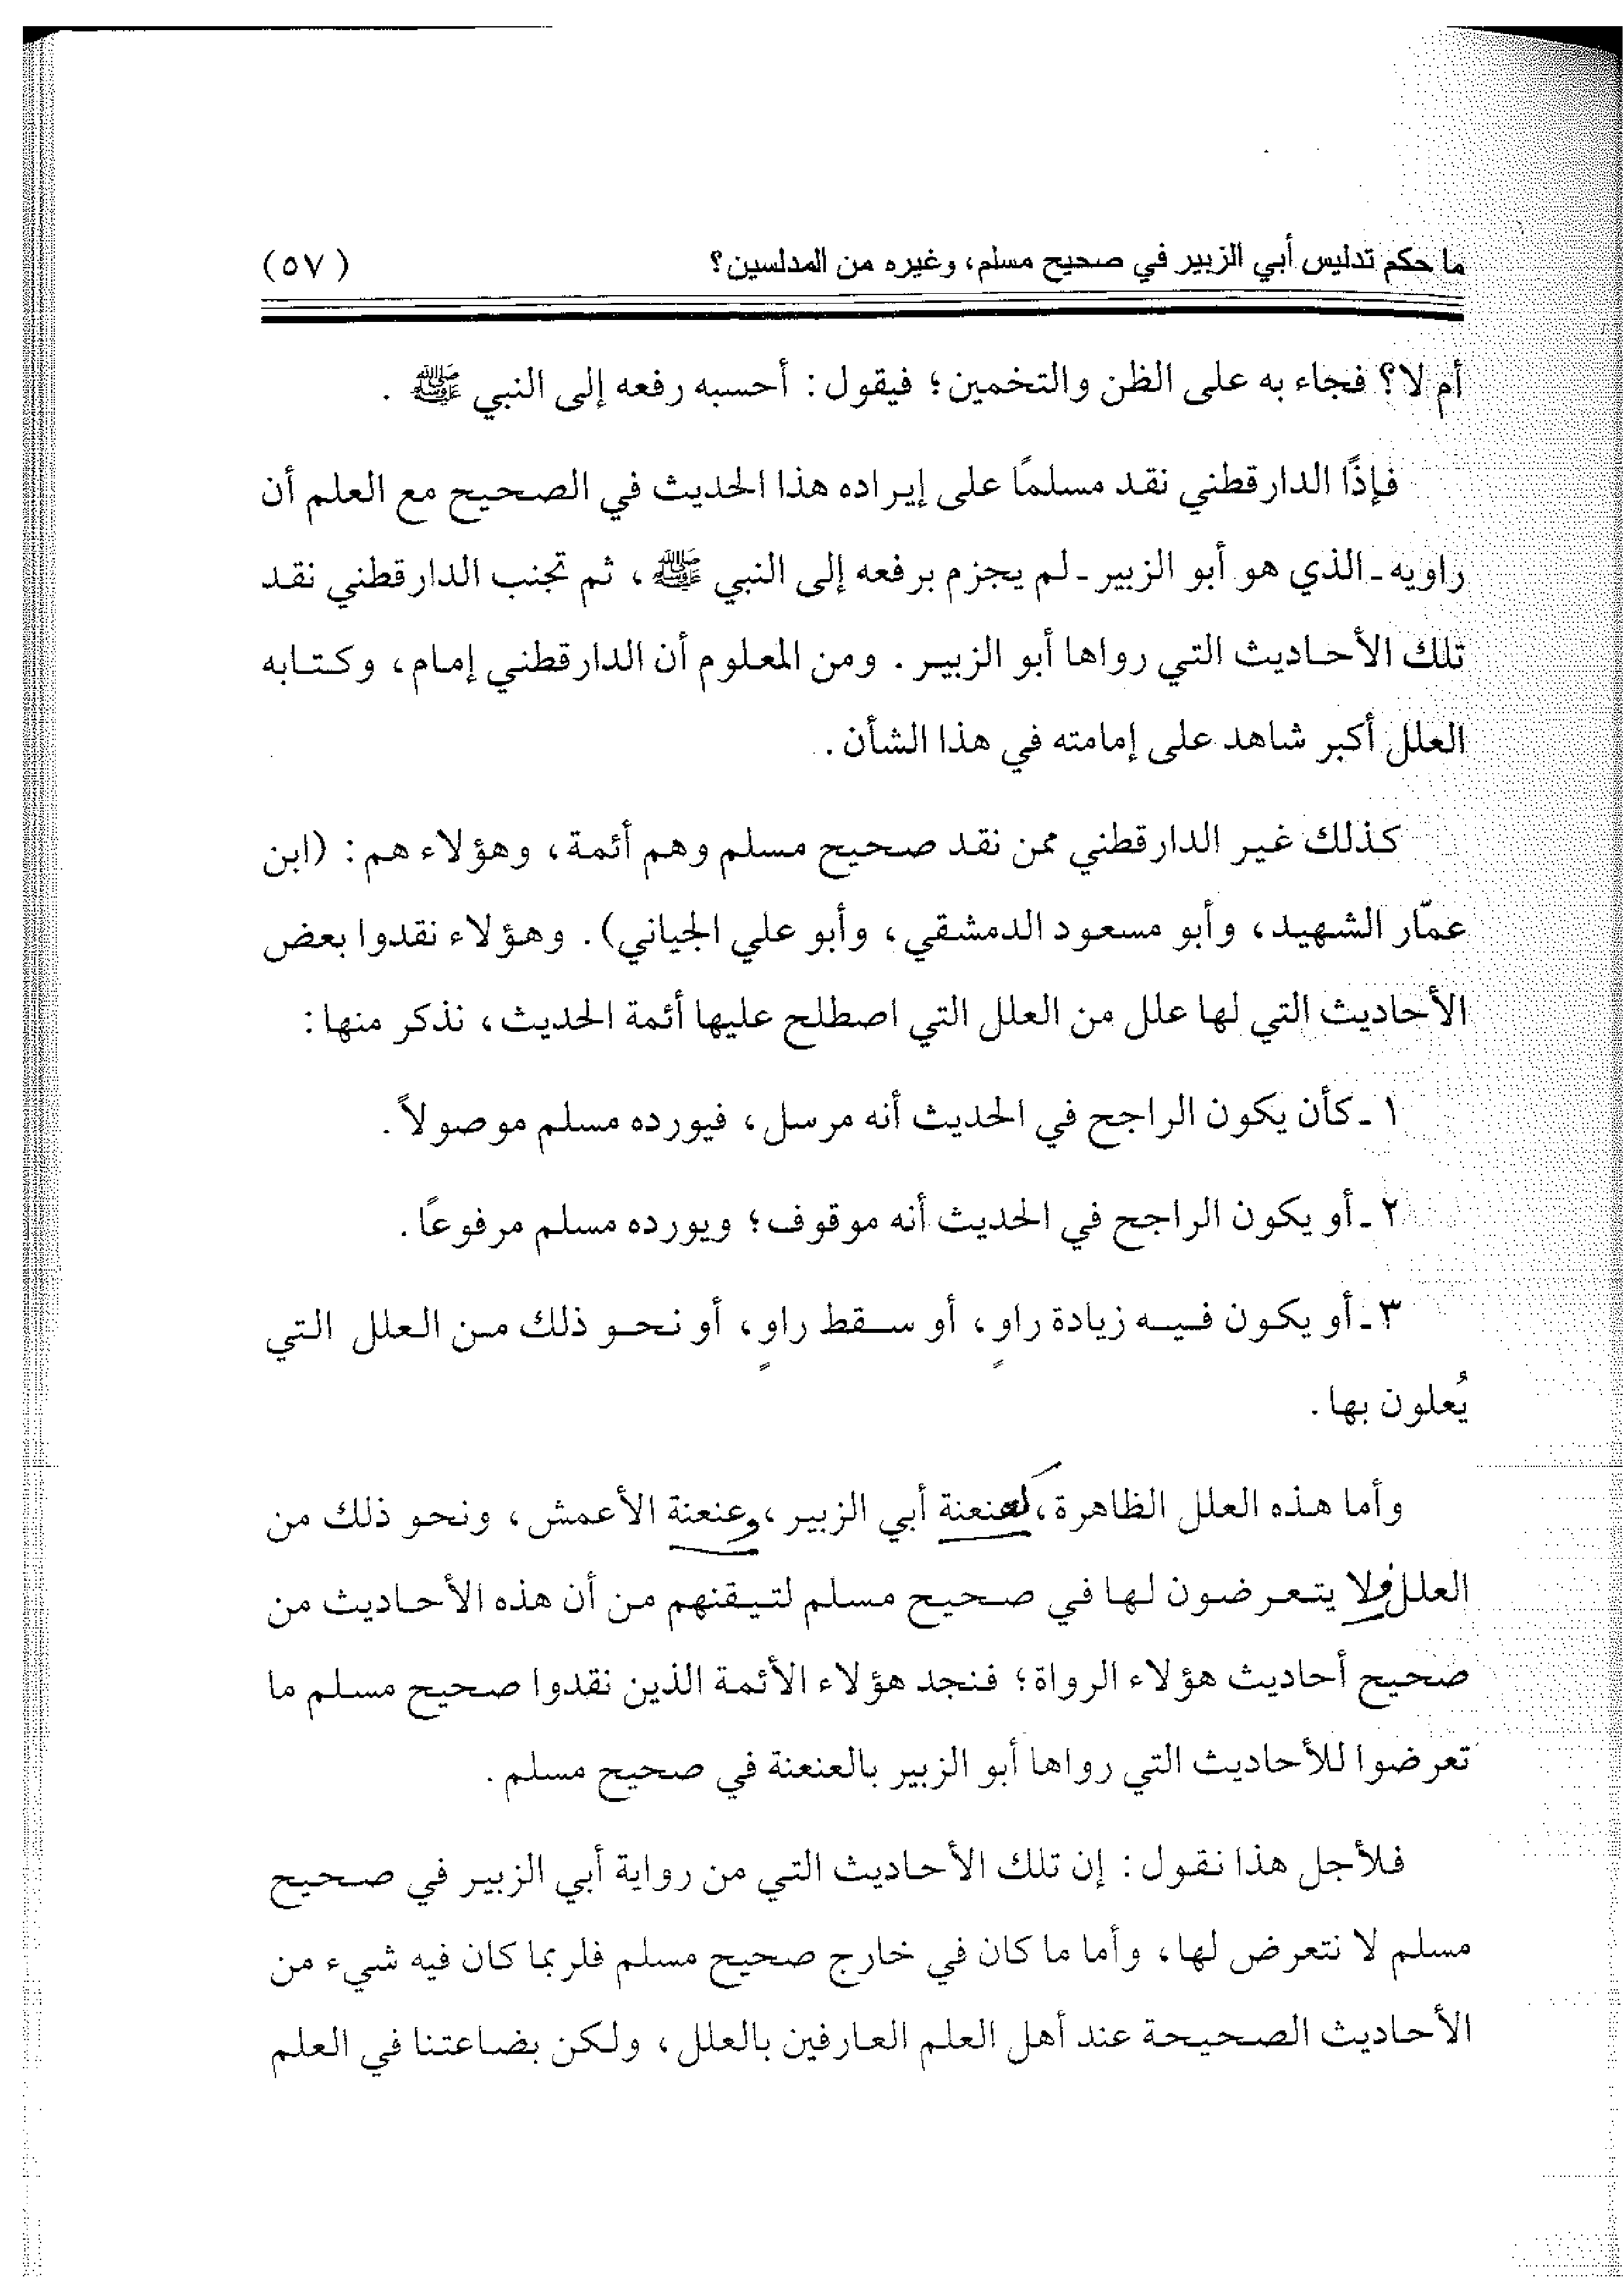 ما حكم تدليس أبي الزبير في صحيح مسلم، وغيره من المدلسين؟ (٥٧)
أم لا؟ فجاء به على الظن والتخمين؛ فيقول: أحسبه رفعه إلى النبي ﷺ .
فإذًا الدارقطني نقد مسلمًا على إيراده هذا الحديث في الصحيح مع العلم أن
راويه ـ الذي هو أبو الزبير ـ لم يجزم برفعه إلى النبي ﷺ، ثم تجنب الدارقطني نقد
تلك الأحاديث التي رواها أبو الزبير. ومن المعلوم أن الدارقطني إمام، وكتابه
العلل أكبر شاهد على إمامته في هذا الشأن.
كذلك غير الدارقطني ممن نقد صحيح مسلم وهم أئمة، وهؤلاء هم: (ابن
عمّار الشهيد، وأبو مسعود الدمشقي، وأبو علي الجياني). وهؤلاء نقدوا بعض
الأحاديث التي لها علل من العلل التي اصطلح عليها أئمة الحديث، نذكر منها:
١ ـ كأن يكون الراجح في الحديث أنه مرسل، فيورده مسلم موصولاً.
٢ ـ أو يكون الراجح في الحديث أنه موقوف؛ ويورده مسلم مرفوعاً.
٣ ـ أو يكون فيه زيادة راوٍ، أو سقط راوٍ، أو نحو ذلك من العلل التي
يُعلون بها.
وأما هذه العلل الظاهرة، كعنعنة أبي الزبير، وعنعنة الأعمش، ونحو ذلك من
العلل فلا يتعرضون لها في صحيح مسلم لتيقنهم من أن هذه الأحاديث من
صحيح أحاديث هؤلاء الرواة؛ فنجد هؤلاء الأئمة الذين نقدوا صحيح مسلم ما
تعرضوا للأحاديث التي رواها أبو الزبير بالعنعنة في صحيح مسلم.
فلأجل هذا نقول: إن تلك الأحاديث التي من رواية أبي الزبير في صحيح
مسلم لا نتعرض لها، وأما ما كان في خارج صحيح مسلم فلربما كان فيه شيء من
الأحاديث الصحيحة عند أهل العلم العارفين بالعلل، ولكن بضاعتنا في العلم